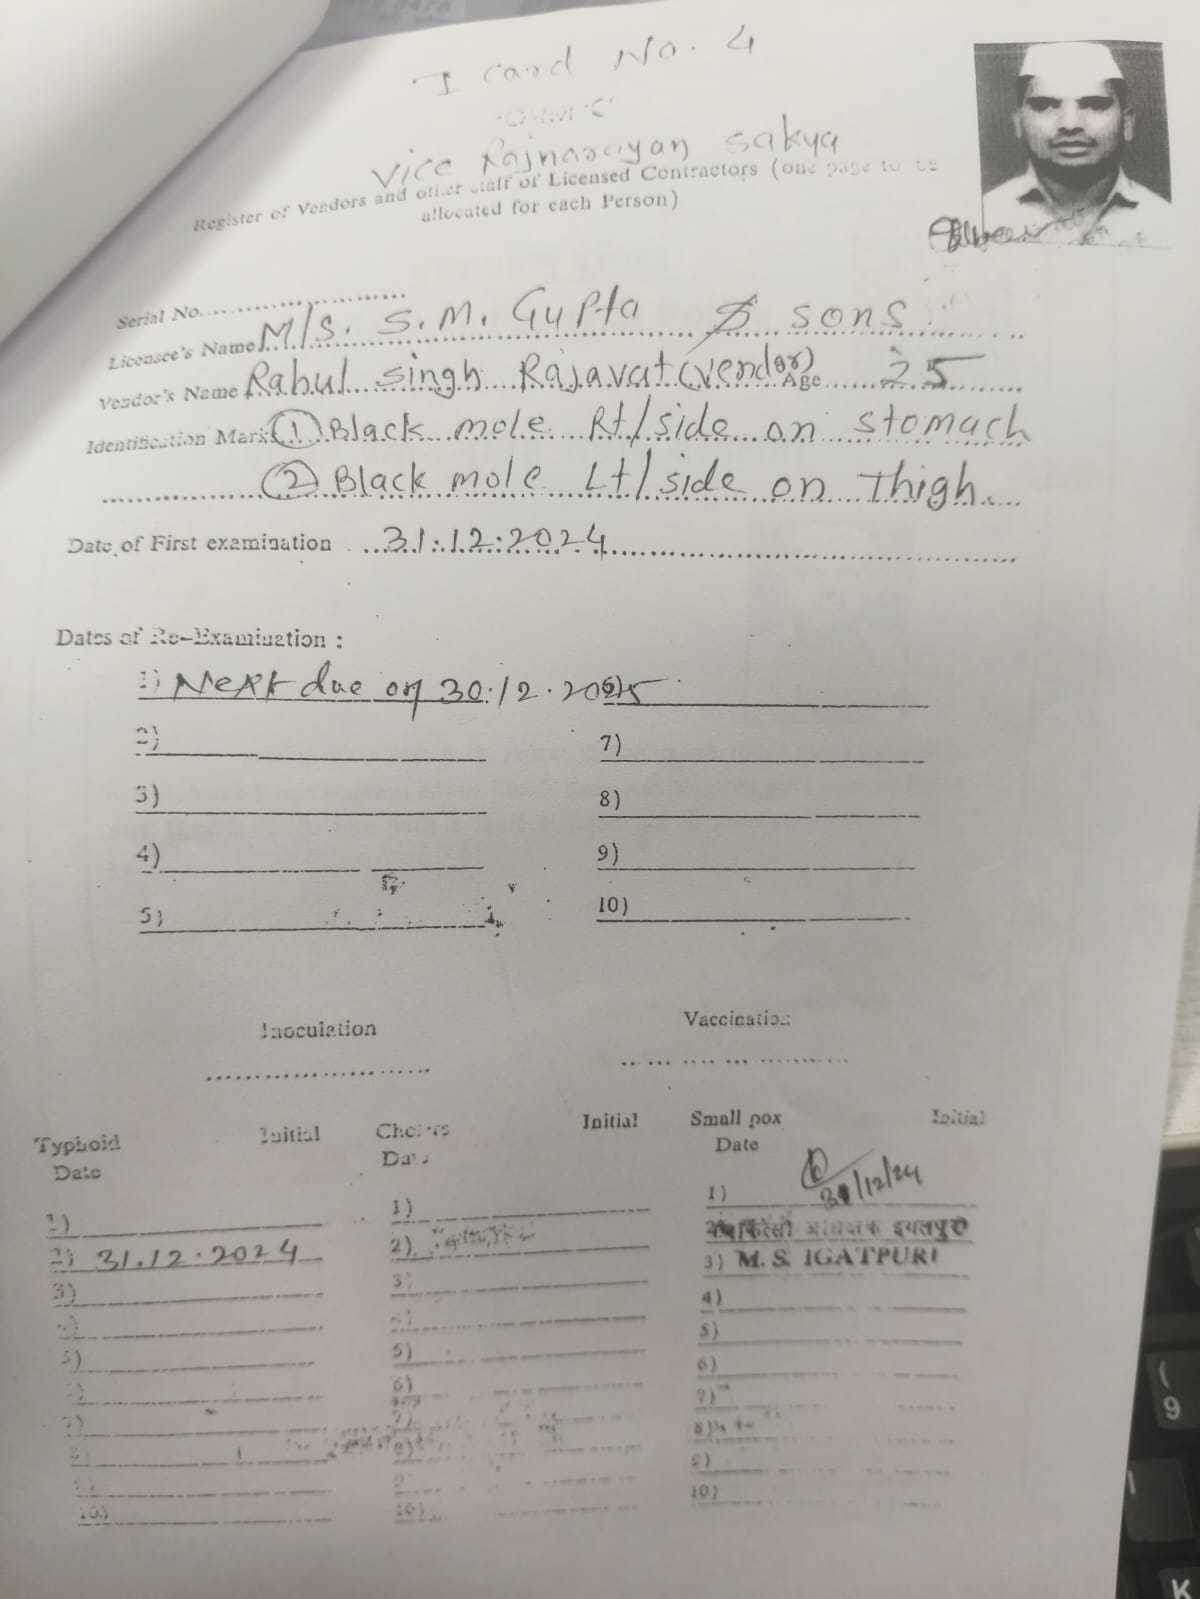 I Card No. 4
Vice Rajnarayan Sakya
Register of Vendors and other staff of Licensed Contractors (one page to be
allocated for each Person)
Serial No.
Licensee's Name M/S. S.M. Gupta & sons
Vendor's Name Rahul singh Rajavat (vendor) Age 25
Identification Mark (1) Black mole Rt/side on stomach
(2) Black mole Lt/side on Thigh.
Date of First examination 31.12.2024
Dates of Re-Examination :
1) Next due on 30.12.2025
2)
7)
3)
8)
4)
9)
5)
10)
Inoculation
Vaccination
Typhoid Date Initial
Cholera Date Initial
Small pox Date Initial
1) 1) 1) 31/12/24
2) 31.12.2024 2) 2) अधिक्षक इगतपुरी
3) 3) 3) M.S. IGATPURI
4) 4) 4)
5) 5) 5)
6) 6)
7) 7)
8) 8) 8)
9)
10) 10) 10)